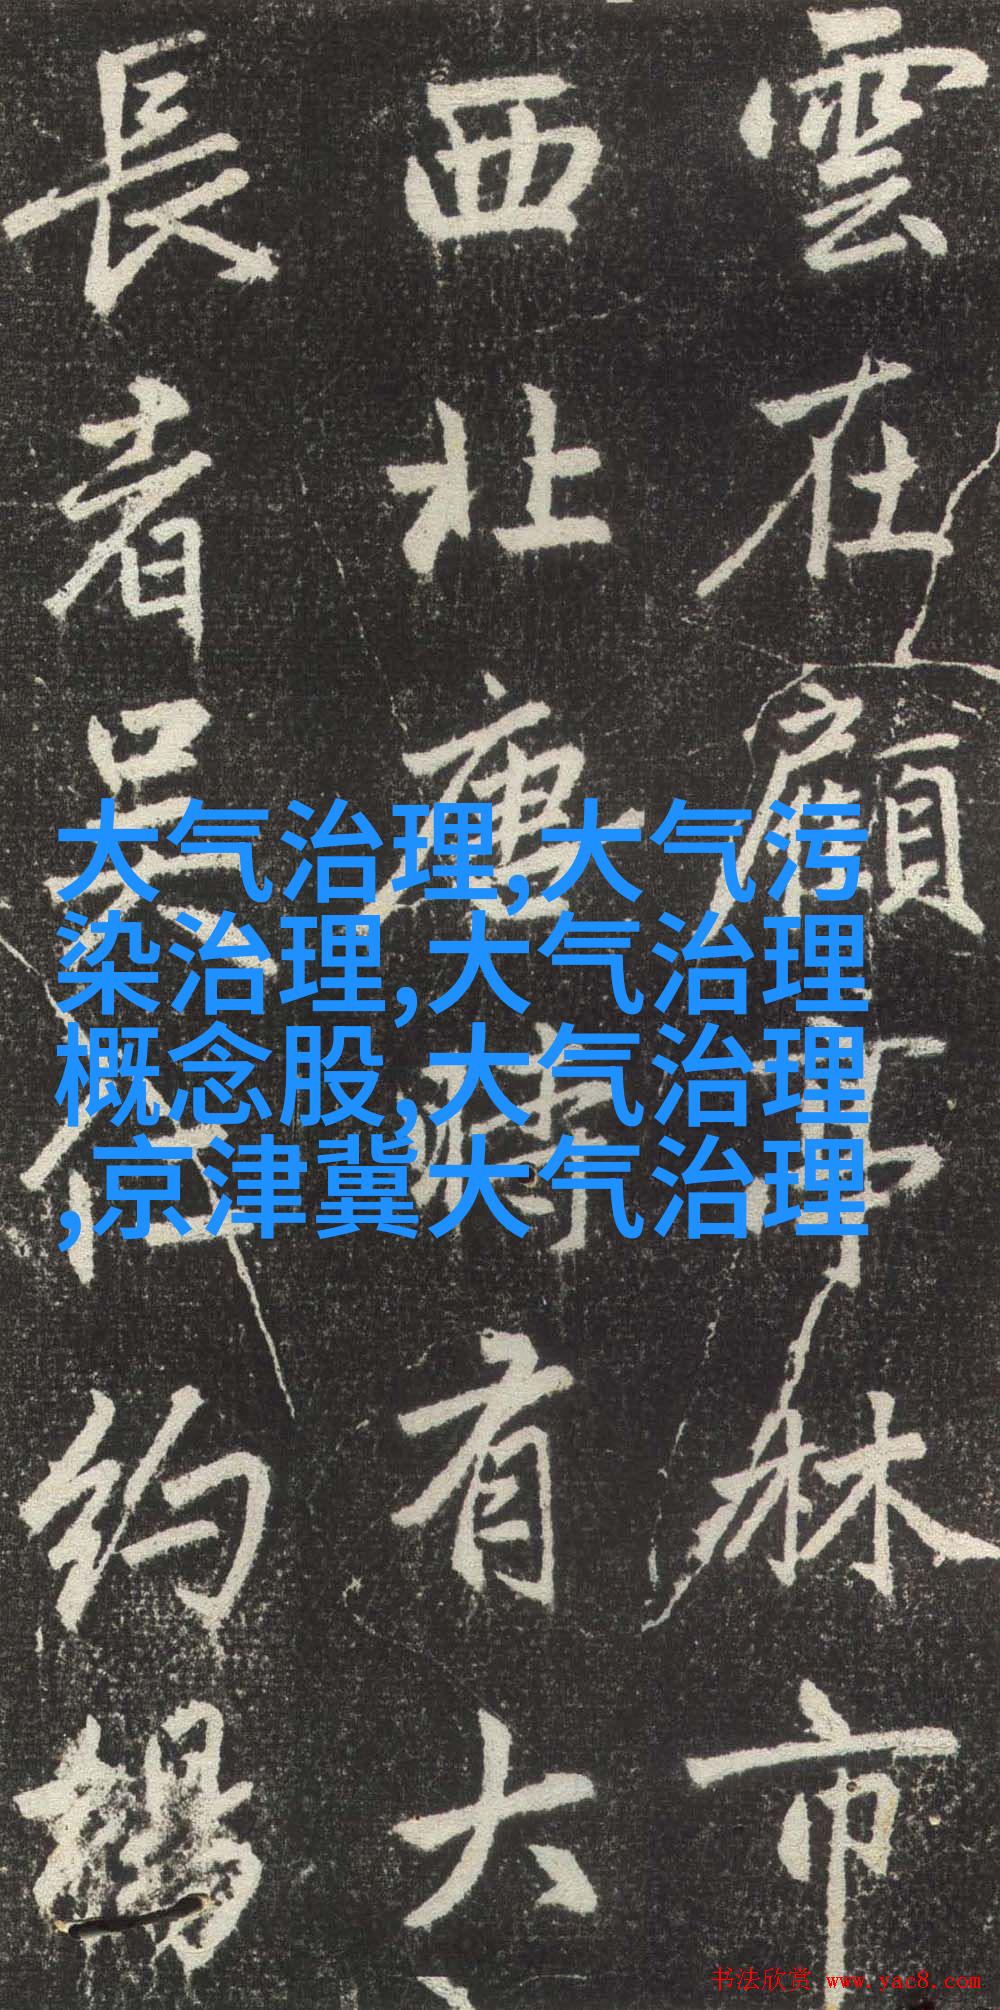 雲在顧亭林市
西北唐時有大
長者吳約
大气治理,大气污
染治理,大气治理
概念股,大气治理
,京津冀大气治理
书法欣赏 www.yac8.com